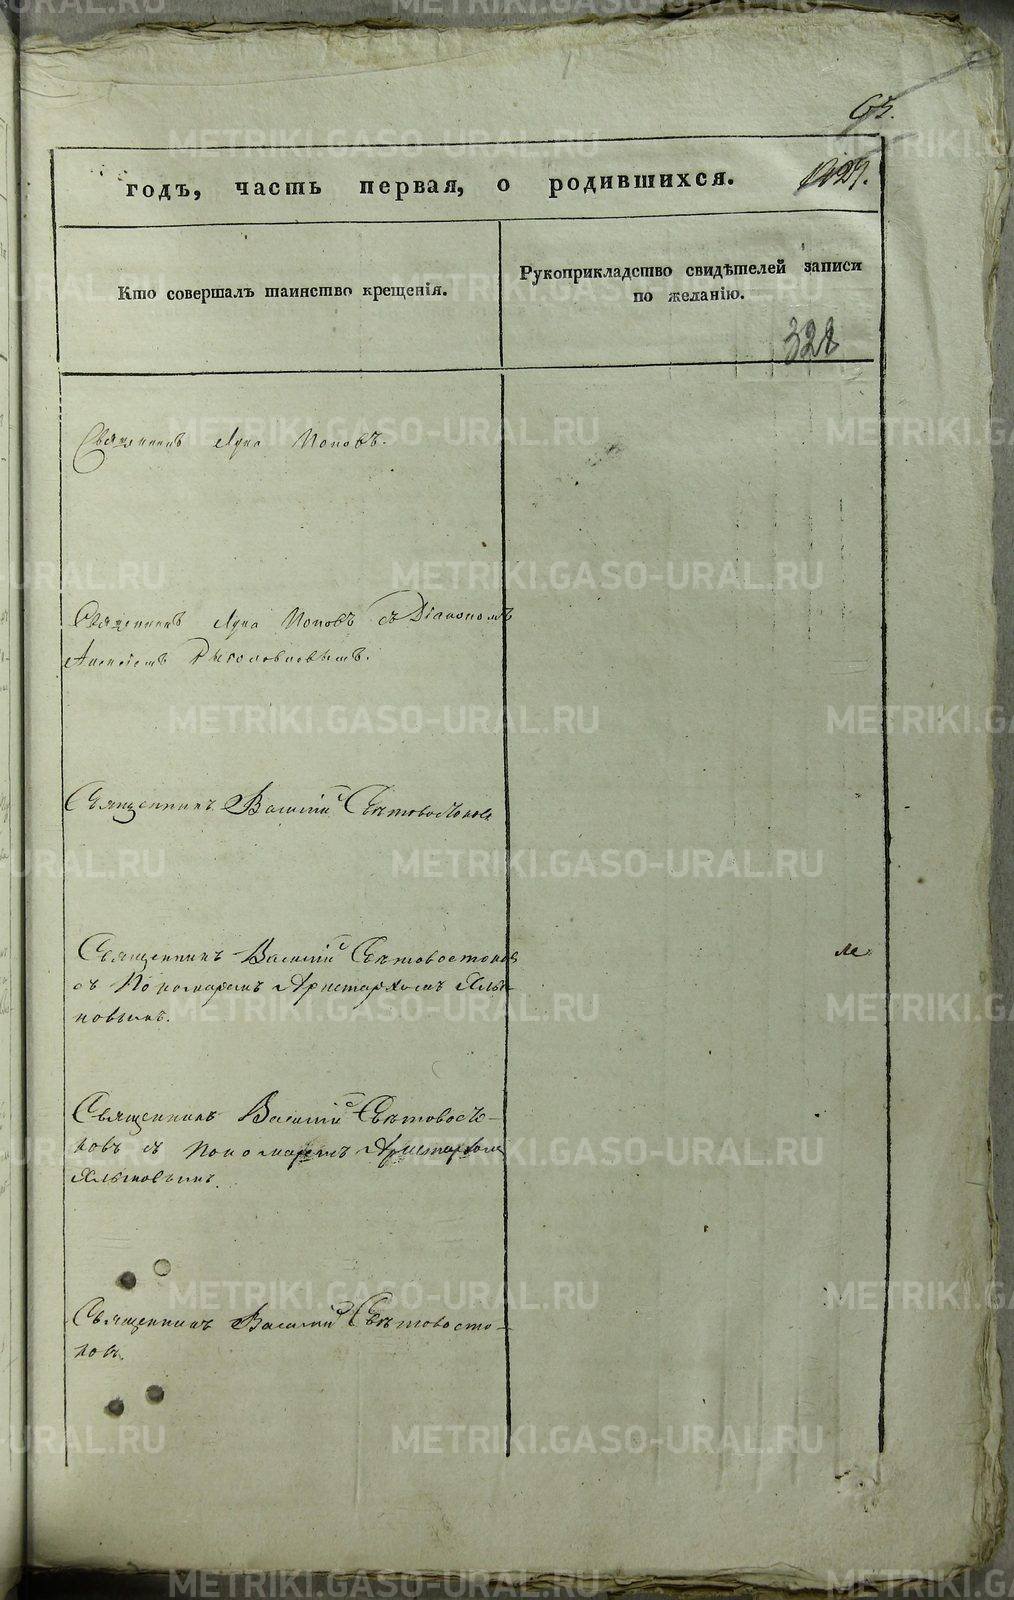 65.
годъ, часть первая, о родившихся.
Кто совершалъ таинство крещенія.
Рукоприкладство свидѣтелей записи
по желанію.
328
Священникъ Лука Поповъ.
Священникъ Лука Поповъ съ Діакономъ
Алексіемъ
Священникъ Василій Свѣтовостоковъ
Священникъ Василій Свѣтовостоковъ
съ Пономаремъ Аристархомъ
новымъ.
Священникъ Василій Свѣтовосто-
ковъ съ Пономаремъ Аристархомъ
Священникъ Василій Свѣтовосто-
ковъ.
METRIKI.GASO-URAL.RU